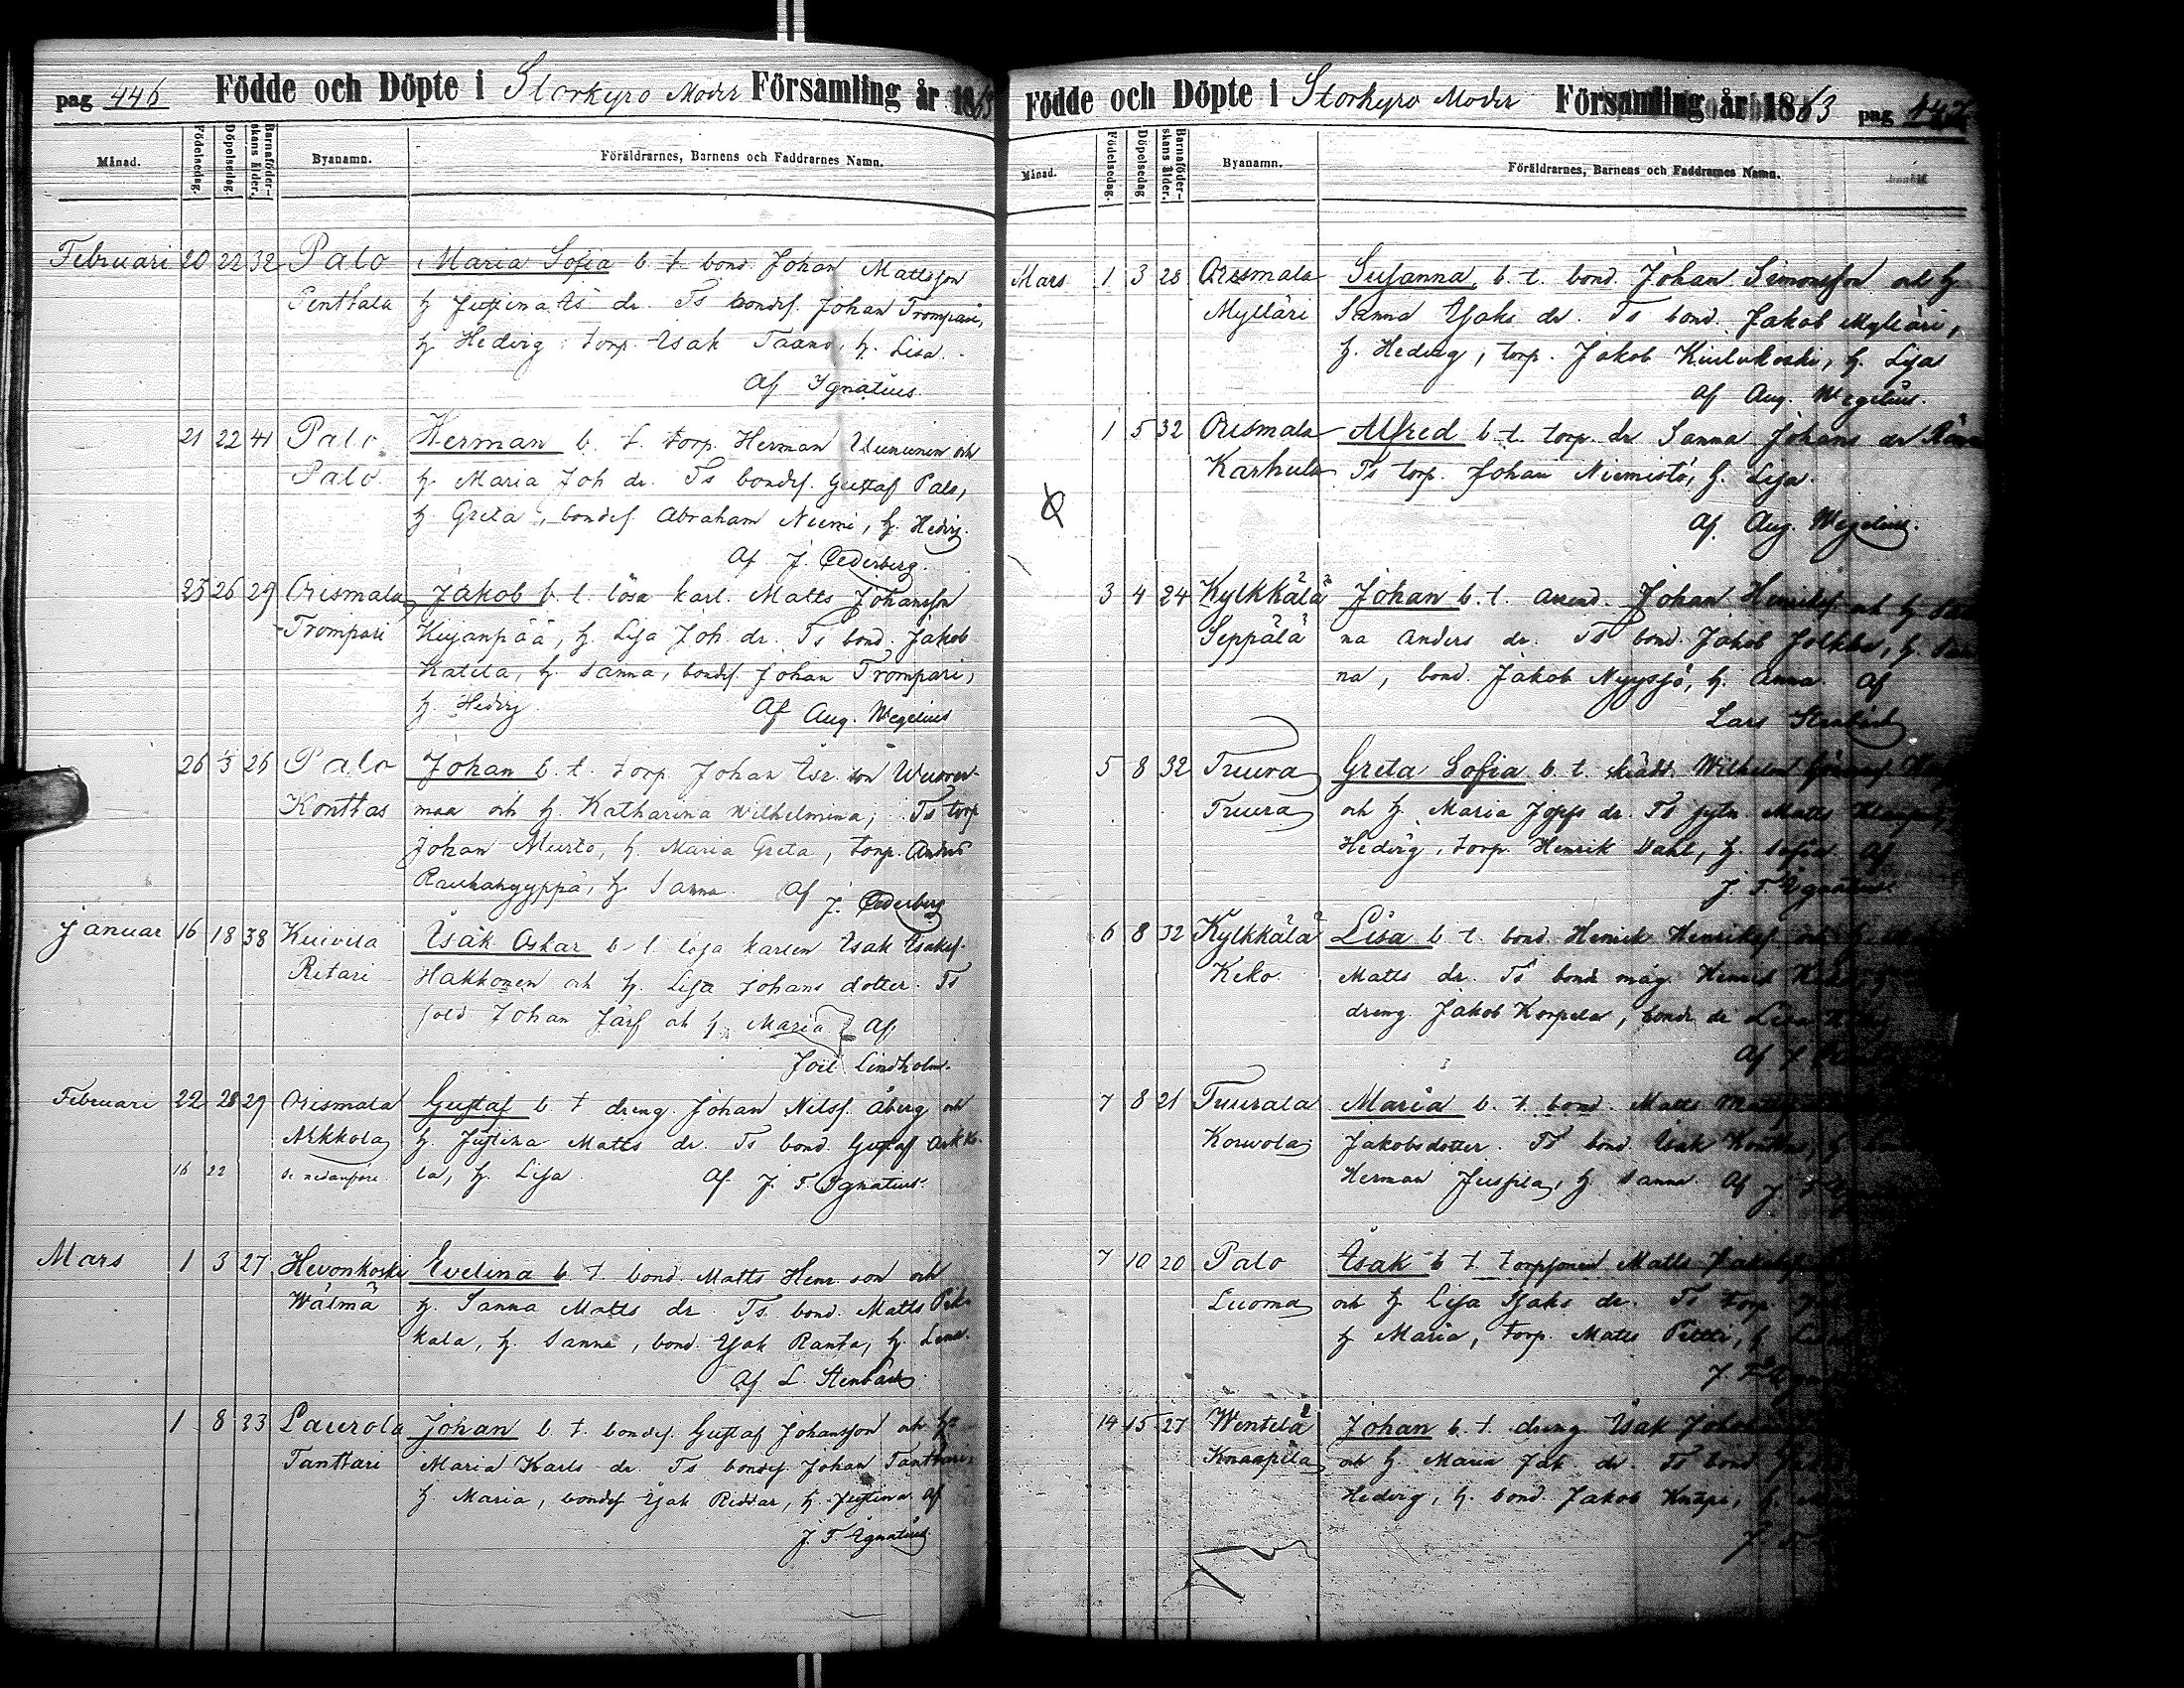 pag 446 Födde och Döpte i Storkyro Moder Församling år 1863
Månad. Födelsedag. Döpelsedag. Barnaföderskans ålder. Byanamn. Föräldrarnes, Barnens och Faddrarnes Namn.
Februari 20 22 32 Palo Maria Sofia b. t. bond Johan Mattsson
Penttala h Justina dr. Ts bondes. Johan Trompari,
h Hedvig torp. Isak Taano, h. Lisa.
Af Ignatius.
21 22 41 Palo Herman b. t. torp. Herman och
Palo h. Maria Joh dr. Ts bondes. Gustaf Palo,
h Greta, bondes. Abraham Niemi, h. Hedvig.
Af J. Cederberg.
25 26 29 Orismala Jakob b. t. lösa karl. Matts Johansson
Trompari Kujanpää, h. Lisa Joh. dr. Ts bond. Jakob
Katila, h. Sanna, bondes. Johan Trompari,
h. Hedvig. Af Aug. Wegelius
26 26 Palo Johan b. t. torp. Johan Isr. son Wuoren-
Konttas maa och h Katharina Wilhelmina; Ts torp
Johan Murto, h. Maria Greta, torp. Anders
h. Sanna. Af J. Cederberg
Januar 16 18 38 Kuivila Isak Oskar b. t. lösa karlen Isak Isakss.
Ritari Hakkonen och h. Lisa Johans dotter. Ts
sold Johan Järf och h. Maria Af
Joel Lindholm.
Februari 22 28 29 Orismala Gustaf b t dreng. Johan Nilss. Åberg och
Arkkola h. Justina Matts dr. Ts bond. Gustaf Arkko-
16 22 se nedanföre la, h. Lisa. Af J. F. Ignatius.
Mars 1 3 27 Hevonkoski Evelina b. t. bond. Matts Henr. son och
Wälmä h. Sanna Matts dr. Ts. bond. Matts Pek-
kala, h. Sanna, bond. Isak Ranta, h. Lena.
Af L. Stenbäck.
1 8 33 Laurola Johan b. t. bondes. Gustaf Johansson och h.
Tanttari Maria Karls dr. Ts bondes. Johan Tanttari,
h Maria, bondes Isak Riddar, h. Justina. Af
J. F. Ignatius
Födde och Döpte i Storkyro Moder Församling år 1863 pag 447
Månad. Födelsedag. Döpelsedag Barnaföderskans ålder. Byanamn. Föräldrarnes, Barnens och Faddrarnes Namn.
Mars 1 3 28 Orismala Susanna, b. t. bond. Johan Simonsson och h
Mylläri Sanna Isaks dr. Ts bond. Jakob Mylläri,
h. Hedvig, torp. Jakob Kiulukoski, h. Lisa
Af Aug. Wegelius.
1 5 32 Orismala Alfred b. t. torp. dr Sanna Johans dr
Karhula Ts torp. Johan Niemistö, h. Lisa.
Af. Aug. Wegelius.
3 4 24 Kylkkälä Johan b. t. arend. Johan Henrikss. och h San
Seppälä na Anders dr. Ts bond. Jakob Jolkka, h. San
na, bond. Jakob Nyysjö, h. Anna. Af
Lars Stenbäck
5 8 32 Tuura Greta Sofia b. t. skädd. Wilhelm
Tuura och h. Maria Josefs dr. Ts Matts
Hedvig, torp. Henrik Dahl, h. Sofia. Af
J. F. Ignatius.
6 8 32 Kylkkälä Lisa b. t. bond. Henrik Henrikss. och h.
Keko. Matts dr. Ts bonde måg Henrik Keko, h
dreng Jakob Korpela, bonde dr Lisa
Af J.
7 8 21 Tuurala Maria b. t. bond. Matts
Kouvola Jakobsdotter. Ts bond. Isak h
Herman Juspila, h Sanna. Af J F
7 10 20 Palo Isak b t. torpsonen Matts Jakobss.
Luoma och h Lisa Isaks dr. Ts torp.
h Maria, torp. Matts h Lisa
J. F. Ignatius
14 15 27 Wentelä Johan b. t. dreng Isak Johan
Knaapila och h Maria Jak dr. Ts bond
Hedvig, h. bond. Jakob Knapi, h.
J. F.